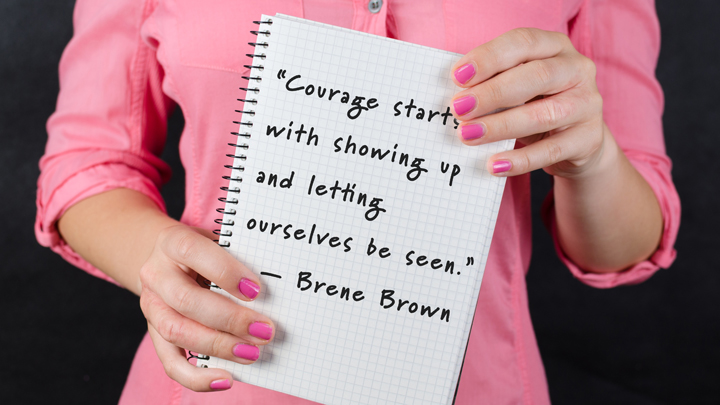 “Courage starts
with showing up
and letting
ourselves be seen.”
— Brene Brown